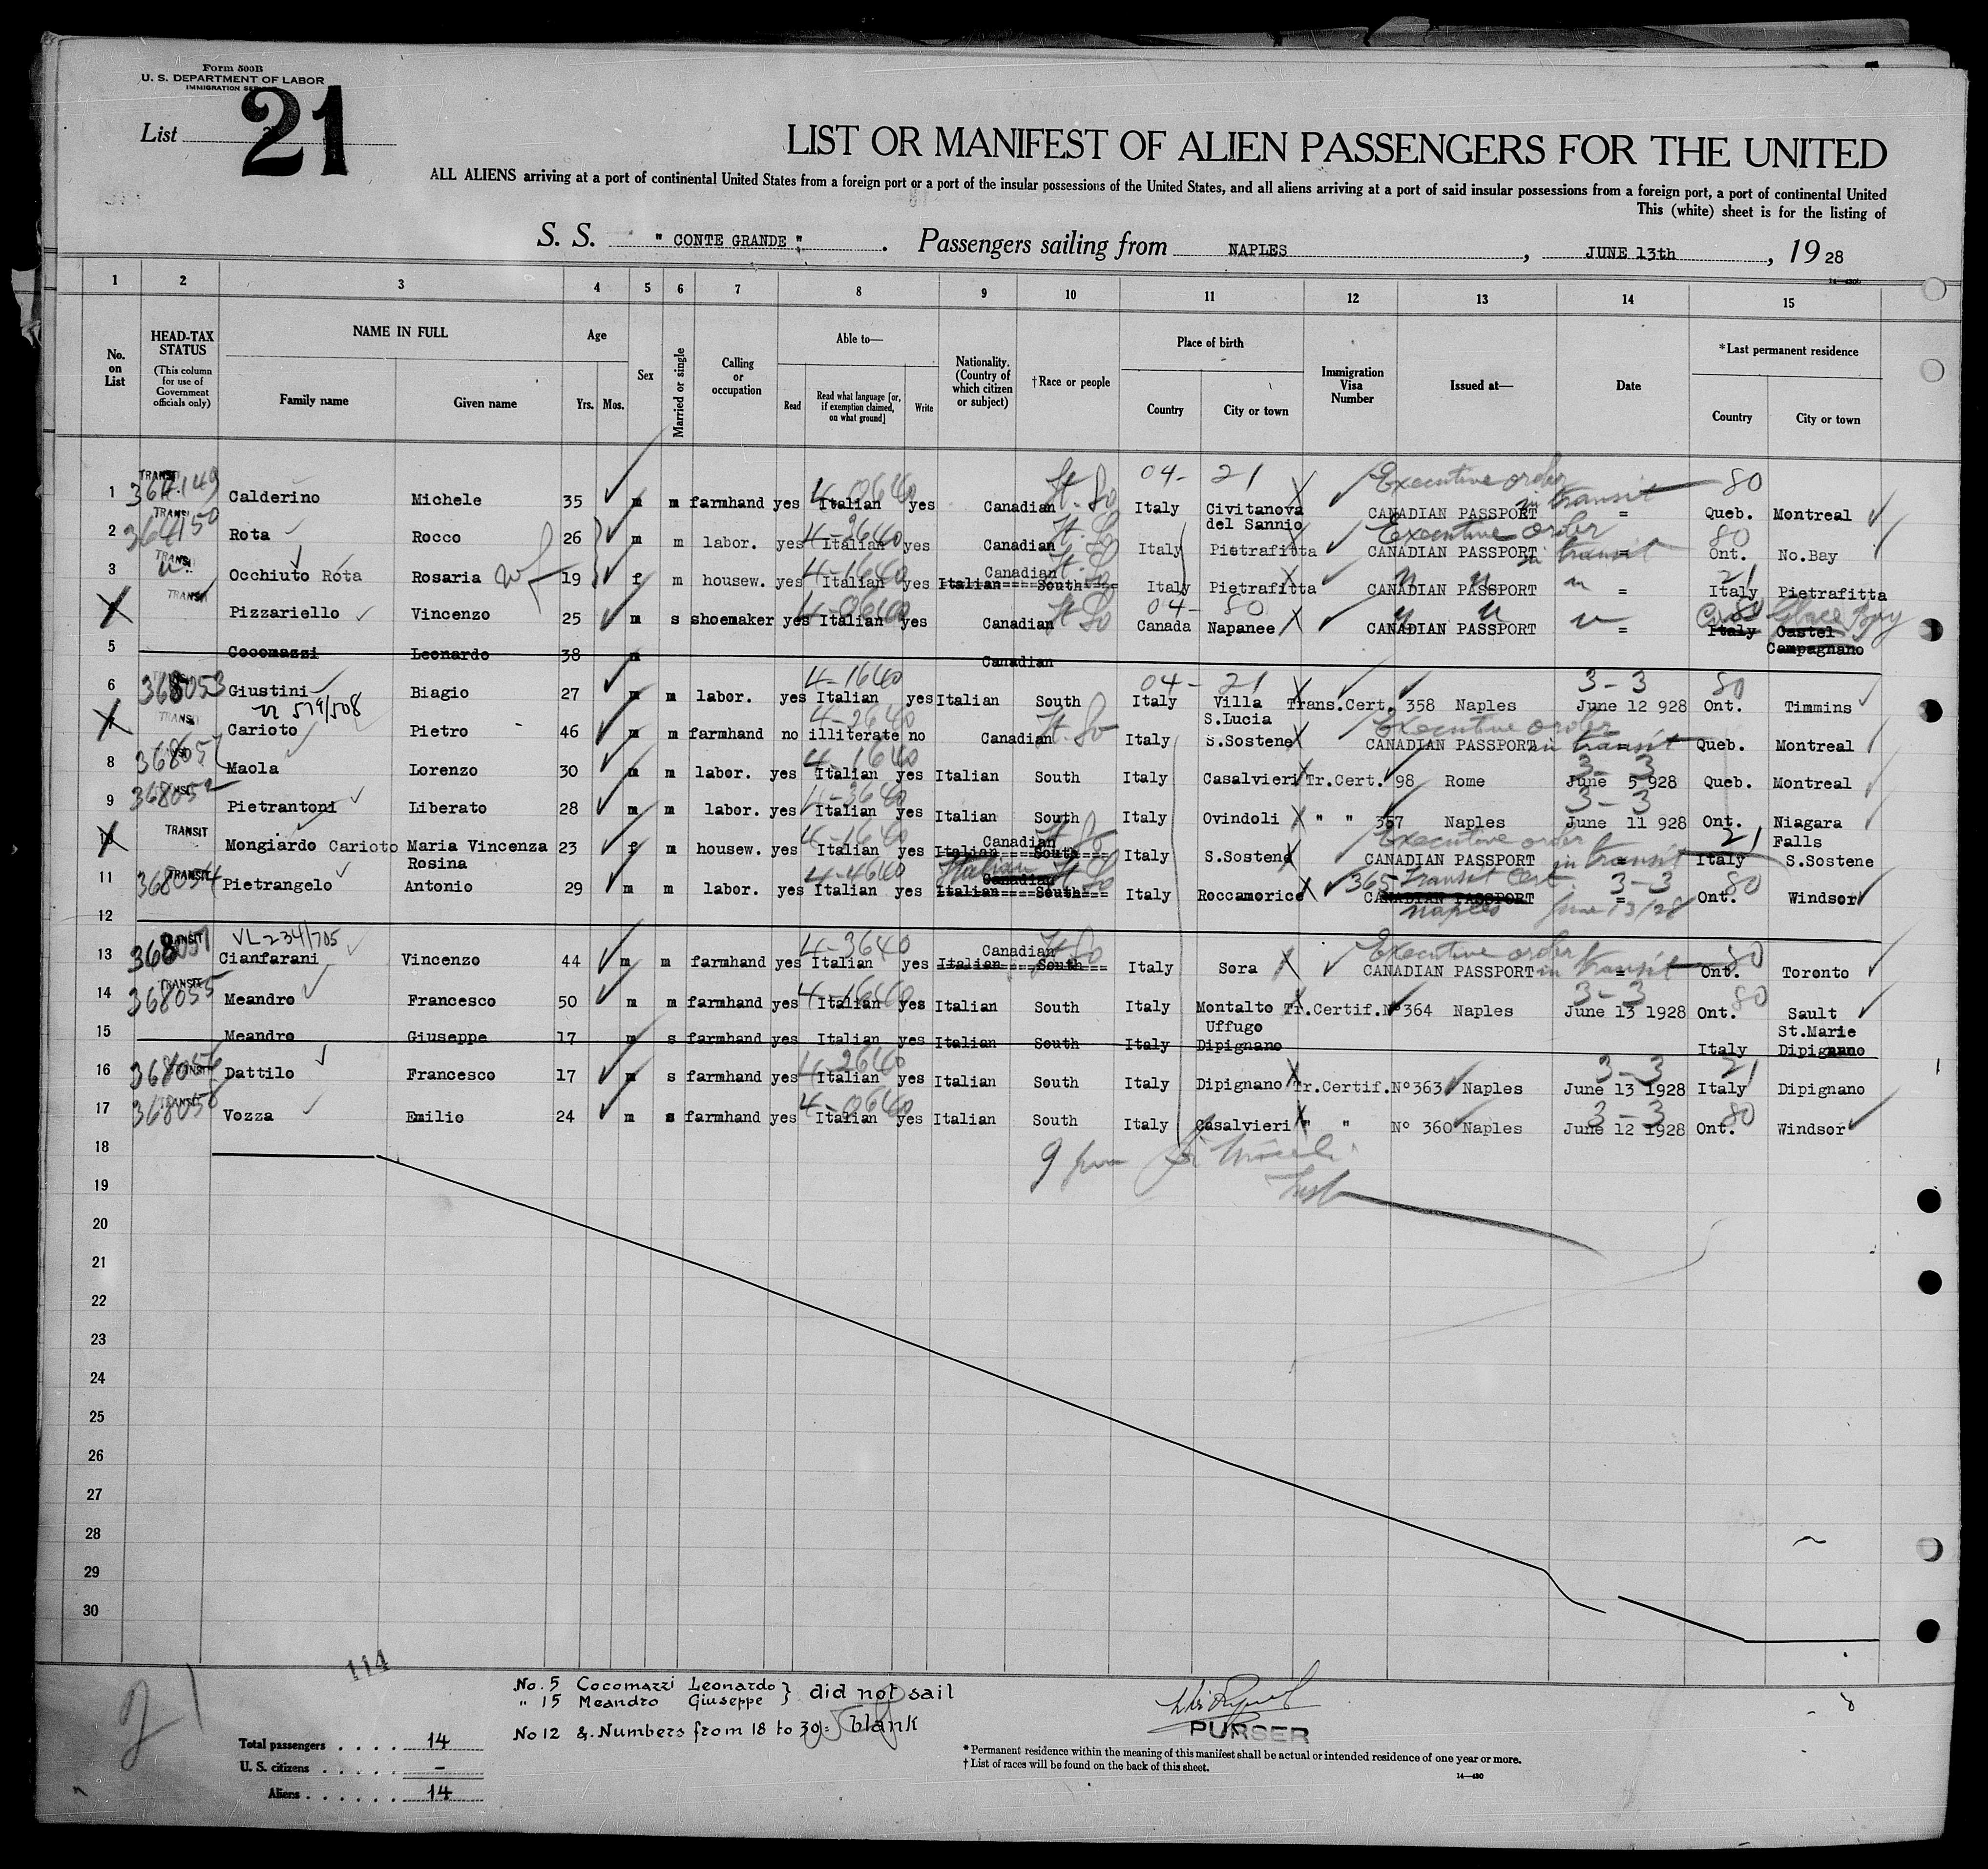 Form 500B
U. S. DEPARTMENT OF LABOR
IMMIGRATION SERVICE
List 21
LIST OR MANIFEST OF ALIEN PASSENGERS FOR THE UNITED
ALL ALIENS arriving at a port of continental United States from a foreign port or a port of the insular possessions of the United States, and all aliens arriving at a port of said insular possessions from a foreign port, a port of continental United
This (white) sheet is for the listing of
S. S. " CONTE GRANDE ". Passengers sailing from NAPLES, JUNE 13th, 19 28
1 2 3 4 5 6 7 8 9 10 11 12 13 14 15
No. on List
HEAD-TAX STATUS (This column for use of Government officials only)
NAME IN FULL Family name Given name
Age Yrs. Mos.
Sex
Married or single
Calling or occupation
Able to— Read Read what language [or, if exemption claimed, on what ground] Write
Nationality. (Country of which citizen or subject)
†Race or people
Place of birth Country City or town
Immigration Visa Number
Issued at—
Date
*Last permanent residence Country City or town
04- 21 Executive order in transit 80
1 TRANSIT Calderino Michele 35 m m farmhand yes Italian yes Canadian Italy Civitanova del Sannio CANADIAN PASSPORT = Queb. Montreal
Executive order in transit 80
2 364150 Rota Rocco 26 m m labor. yes Italian yes Canadian Italy Pietrafitta CANADIAN PASSPORT = Ont. No.Bay
3 Occhiuto Rota Rosaria wf 19 f m housew. yes Italian yes Canadian Italian====South=== Italy Pietrafitta CANADIAN PASSPORT = 21 Italy Pietrafitta
04- 80
4 TRANSIT Pizzariello Vincenzo 25 m s shoemaker yes Italian yes Canadian Canada Napanee CANADIAN PASSPORT = Italy Castel Campagnano Glace Bay
5 Cocomazzi Leonardo 38 m Canadian
4-1640 04- 21 3-3 80
6 368053 Giustini Biagio 27 m m labor. yes Italian yes Italian South Italy Villa S.Lucia Trans.Cert. 358 Naples June 12 928 Ont. Timmins
519/508
7 TRANSIT Carioto Pietro 46 m m farmhand no illiterate no Canadian Italy S.Sostene Executive order CANADIAN PASSPORT in transit Queb. Montreal
8 Maola Lorenzo 30 m m labor. yes Italian yes Italian South Italy Casalvieri Tr.Cert. 98 Rome 3-3 June 5 928 Queb. Montreal
9 368052 Pietrantoni Liberato 28 m m labor. yes Italian yes Italian South Italy Ovindoli " " 357 Naples 3-3 June 11 928 Ont. Niagara Falls
10 TRANSIT Mongiardo Carioto Maria Vincenza Rosina 23 f m housew. yes Italian yes Canadian Italian====South=== Italy S.Sostene Executive order CANADIAN PASSPORT in transit 21 Italy S.Sostene
11 368054 TRANSIT Pietrangelo Antonio 29 m m labor. yes Italian yes Italian Canadian Italian====South=== Italy Roccamorice 365 Transit Cert. CANADIAN PASSPORT Naples 3-3 = June 13/28 80 Ont. Windsor
12
VL-234/705
13 Cianfarani Vincenzo 44 m m farmhand yes Italian yes Canadian Italian====South=== Italy Sora Executive order CANADIAN PASSPORT in transit 80 Ont. Toronto
14 368055 Meandro Francesco 50 m m farmhand yes Italian yes Italian South Italy Montalto Uffugo Tr.Certif.N° 364 Naples 3-3 June 13 1928 80 Ont. Sault St.Marie
15 Meandro Giuseppe 17 m s farmhand yes Italian yes Italian South Italy Dipignano Italy Dipignano
16 368056 Dattilo Francesco 17 m s farmhand yes 4-2640 Italian yes Italian South Italy Dipignano Tr.Certif.N°363 Naples 3-3 June 13 1928 21 Italy Dipignano
17 368058 Vozza Emilio 24 m s farmhand yes Italian yes Italian South Italy Casalvieri " " N° 360 Naples 3-3 June 12 1928 80 Ont. Windsor
18
19
20
21
22
23
24
25
26
27
28
29
30
114
21
No. 5 Cocomazzi Leonardo } did not sail
" 15 Meandro Giuseppe
No 12 & Numbers from 18 to 30 = blank
Total passengers . . . . 14
U. S. citizens . . . . . –
Aliens . . . . . . 14
PURSER
*Permanent residence within the meaning of this manifest shall be actual or intended residence of one year or more.
† List of races will be found on the back of this sheet.
14—430